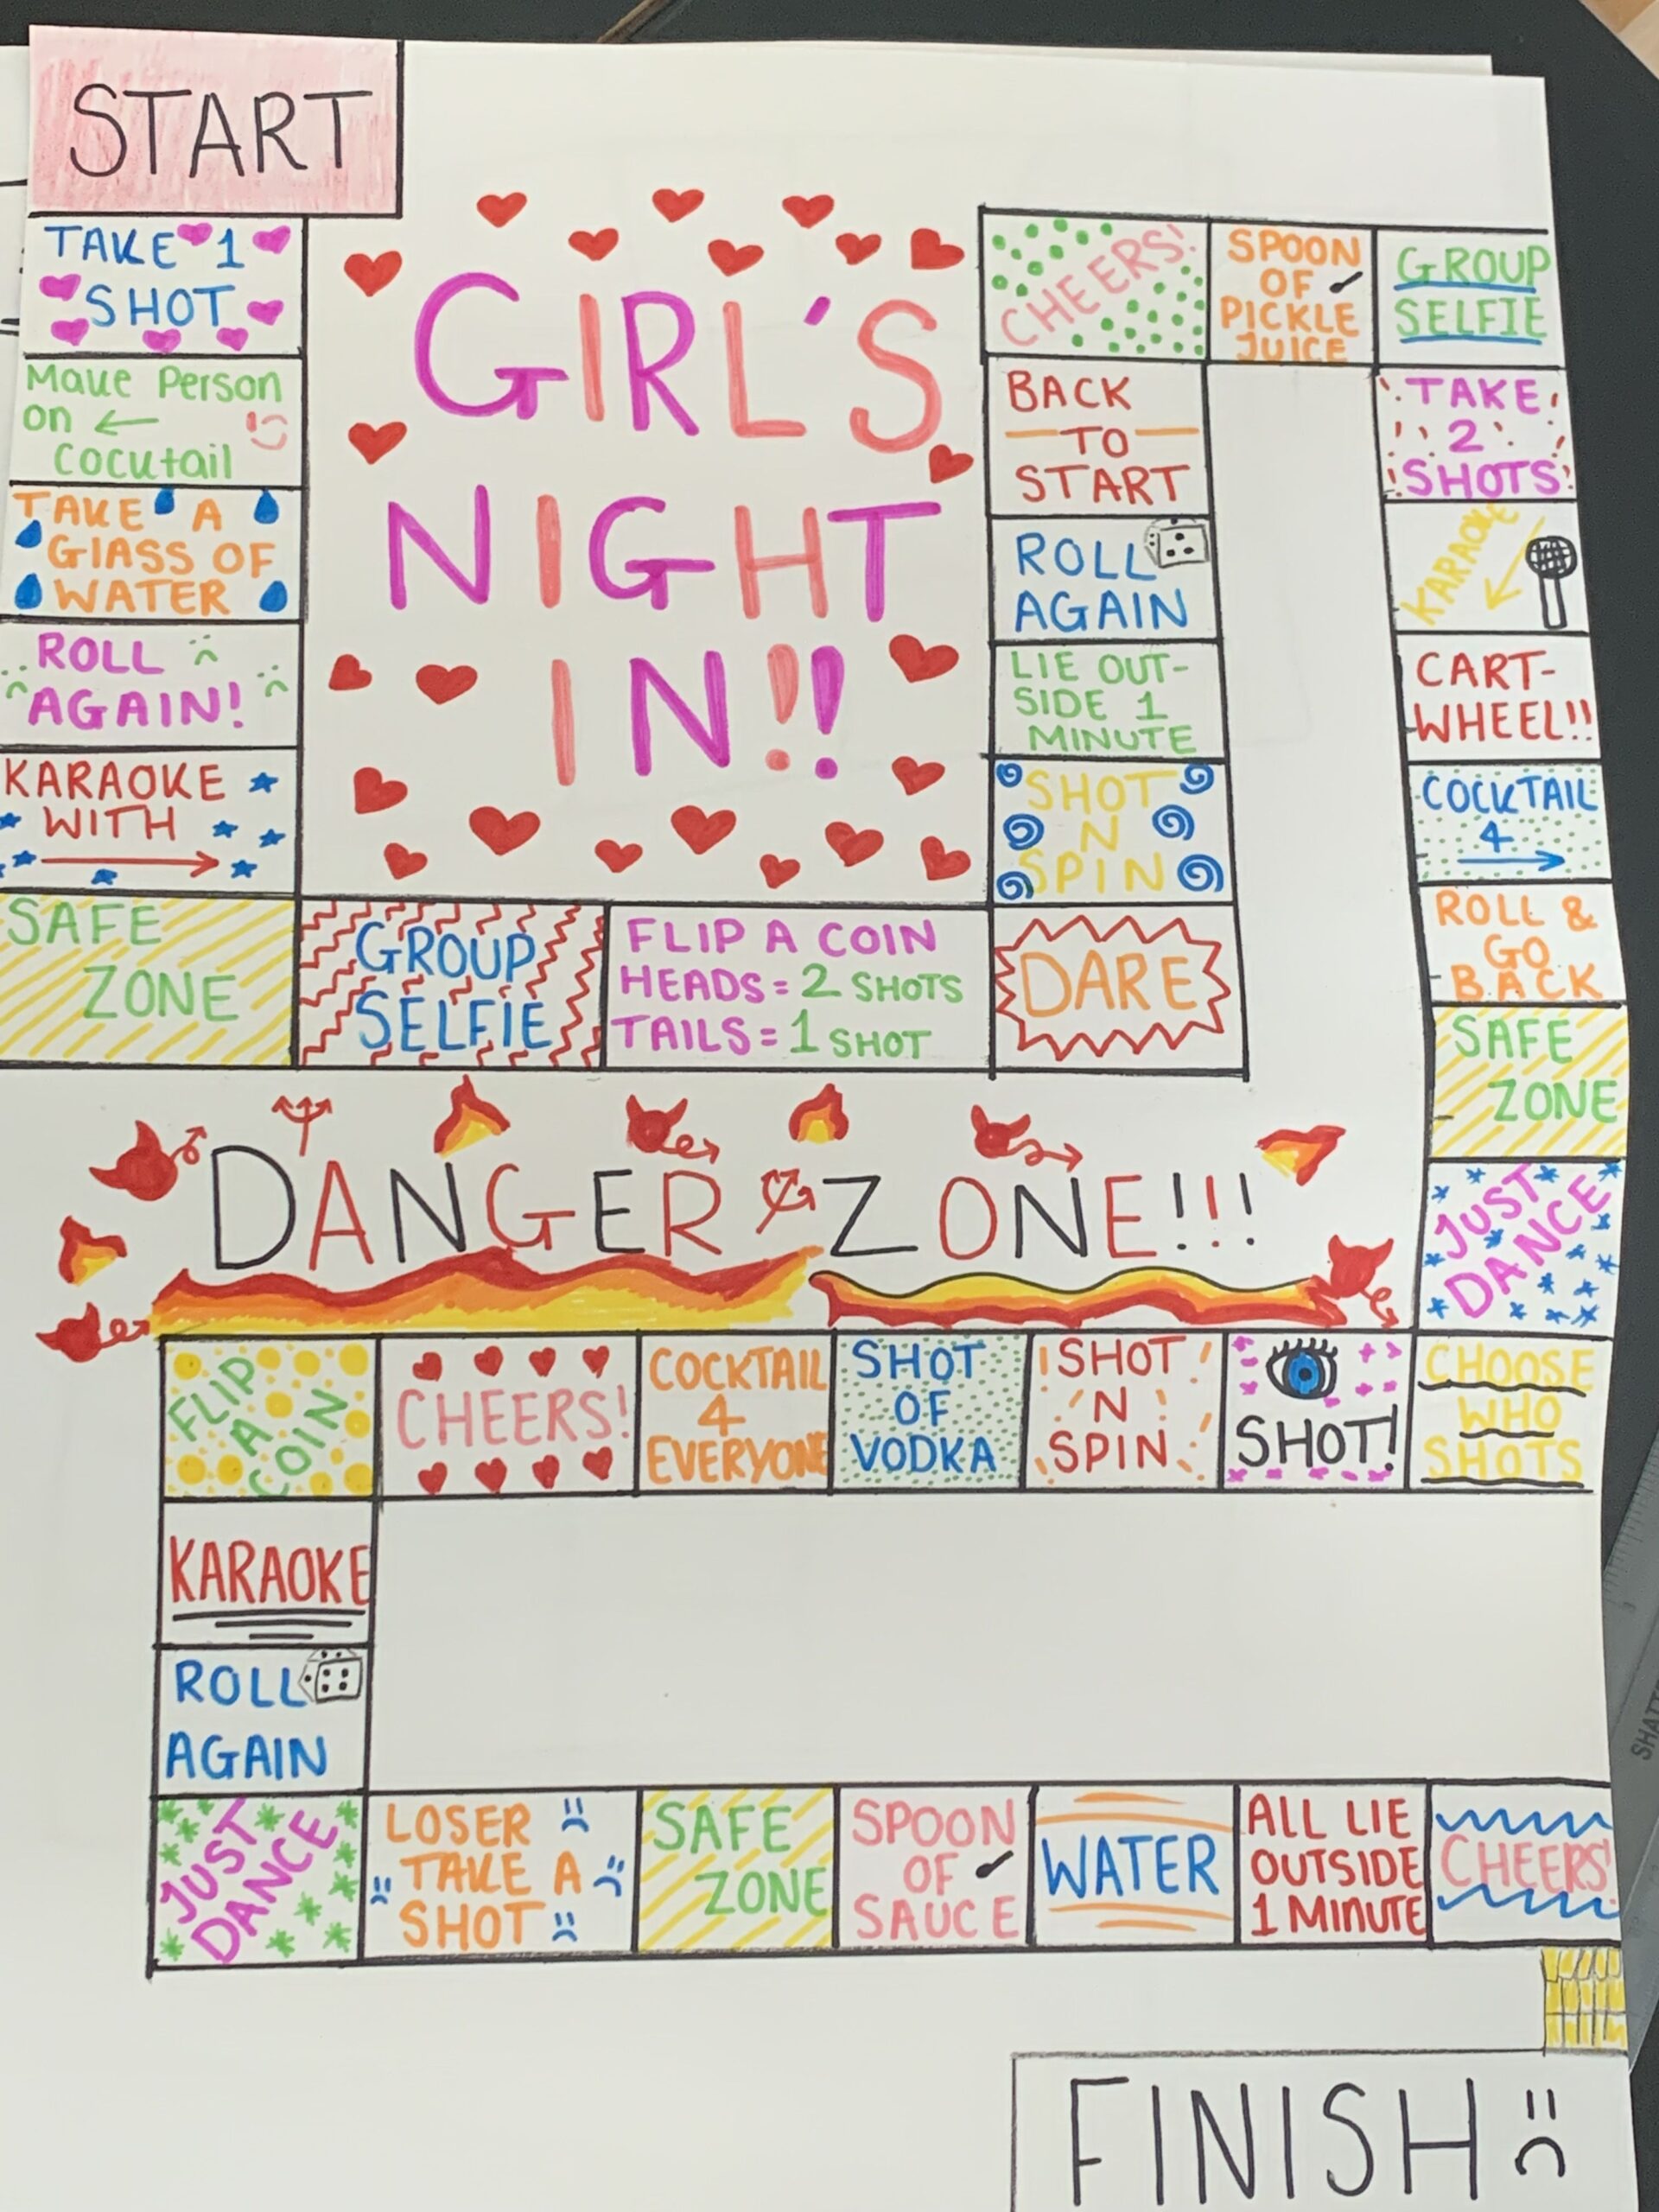 START
TAKE 1
SHOT
Make Person
on ←
Cocktail
TAKE A
GlASS OF
WATER
ROLL
AGAIN!
KARAOKE
WITH
→
SAFE
ZONE
GROUP
SELFIE
FLIP A COIN
HEADS = 2 SHOTS
TAILS = 1 SHOT
DARE
SHOT
N
SPIN
LIE OUT-
SIDE 1
MINUTE
ROLL
AGAIN
BACK
TO
START
CHEERS!
SPOON
OF
PICKLE
JUICE
GROUP
SELFIE
TAKE
2
SHOTS
KARAOKE
CART-
WHEEL!!
COCKTAIL
4
→
ROLL &
GO
BACK
SAFE
ZONE
JUST
DANCE
CHOOSE
WHO
SHOTS
SHOT!
SHOT
N
SPIN
SHOT
OF
VODKA
COCKTAIL
4
EVERYONE
CHEERS!
FLIP
A
COIN
KARAOKE
ROLL
AGAIN
JUST
DANCE
LOSER
TAKE A
SHOT
SAFE
ZONE
SPOON
OF
SAUCE
WATER
ALL LIE
OUTSIDE
1 MINUTE
CHEERS!
FINISH
GIRL'S
NIGHT
IN!!
DANGER ZONE!!!